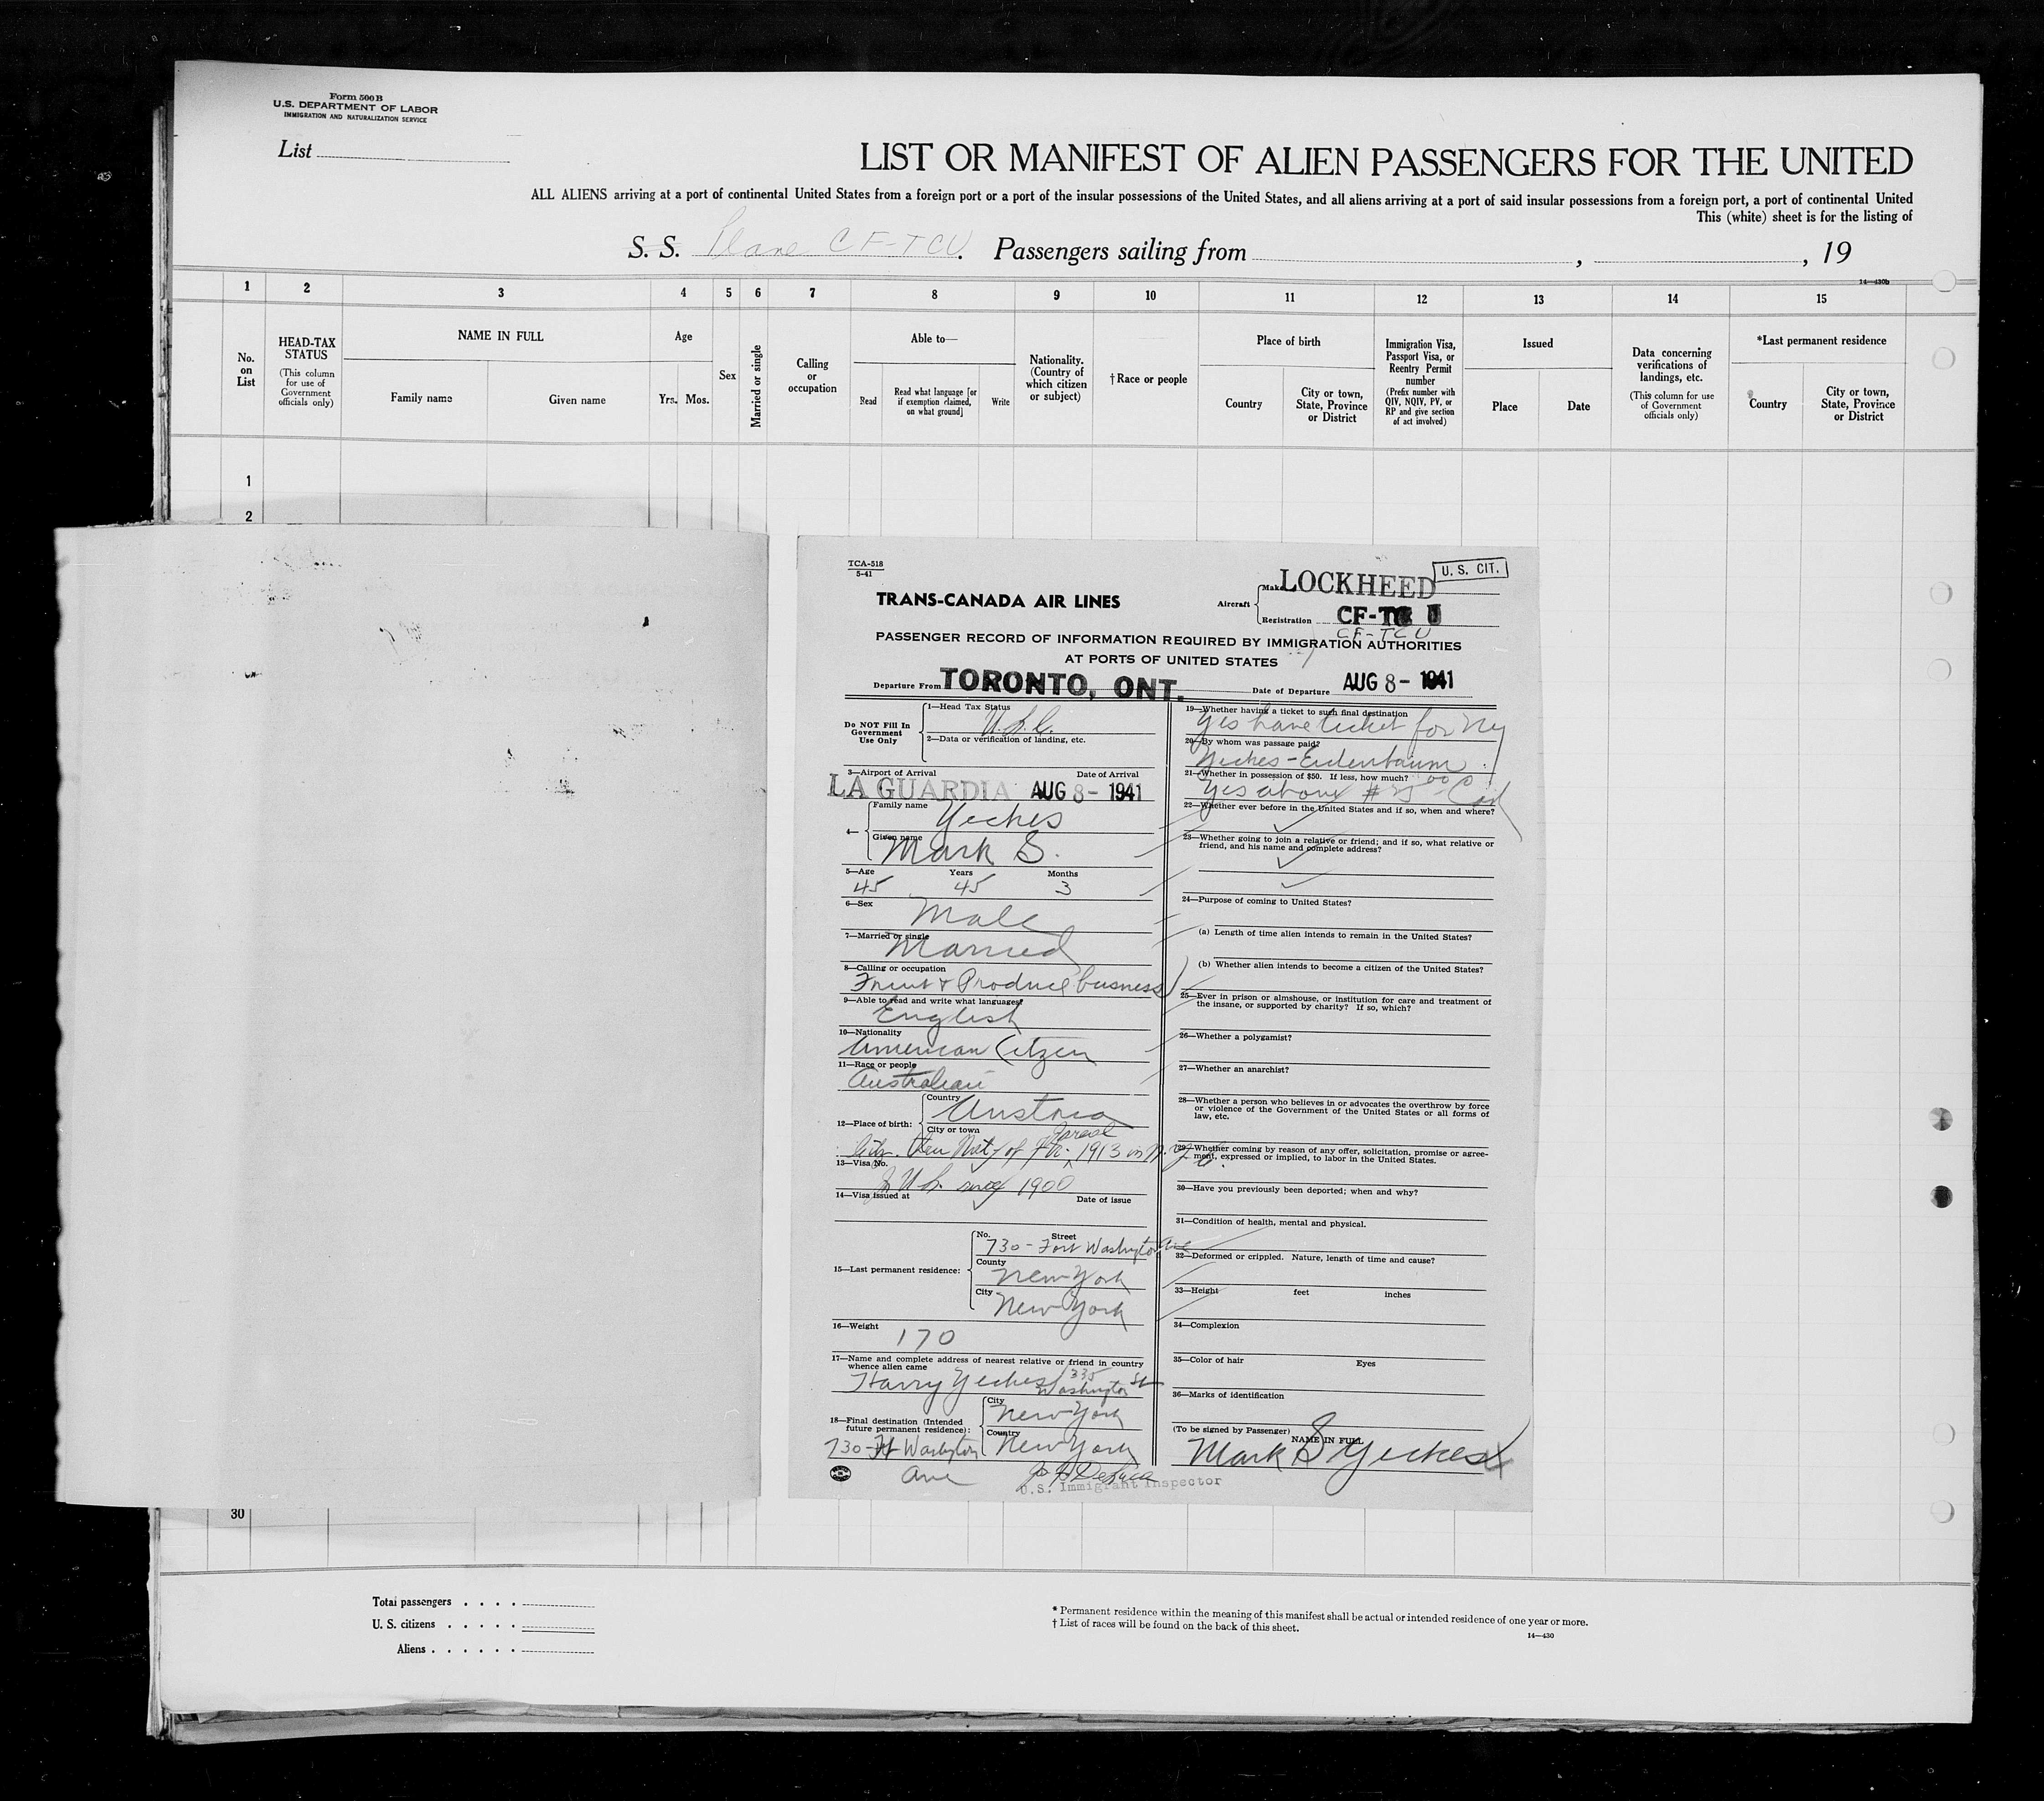 Form 500 B
U.S. DEPARTMENT OF LABOR
IMMIGRATION AND NATURALIZATION SERVICE
List
LIST OR MANIFEST OF ALIEN PASSENGERS FOR THE UNITED
ALL ALIENS arriving at a port of continental United States from a foreign port or a port of the insular possessions of the United States, and all aliens arriving at a port of said insular possessions from a foreign port, a port of continental United
This (white) sheet is for the listing of
S. S. Plane CF-TCU. Passengers sailing from , , 19
14—430b
1 2 3 4 5 6 7 8 9 10 11 12 13 14 15
No. on List
HEAD-TAX STATUS
(This column for use of Government officials only)
NAME IN FULL
Family name
Given name
Age
Yrs. Mos.
Sex
Married or single
Calling or occupation
Able to—
Read
Read what language [or if exemption claimed, on what ground]
Write
Nationality. (Country of which citizen or subject)
† Race or people
Place of birth
Country
City or town, State, Province or District
Immigration Visa, Passport Visa, or Reentry Permit number
(Prefix number with QIV, NQIV, PV, or RP and give section of act involved)
Issued
Place
Date
Data concerning verifications of landings, etc.
(This column for use of Government officials only)
*Last permanent residence
Country
City or town, State, Province or District
1
2
TCA-518
5-41
TRANS-CANADA AIR LINES
Aircraft
Make LOCKHEED
U. S. CIT.
Registration CF-TC U
CF-TCU
PASSENGER RECORD OF INFORMATION REQUIRED BY IMMIGRATION AUTHORITIES
AT PORTS OF UNITED STATES
Departure From TORONTO, ONT. Date of Departure AUG 8 - 1941
Do NOT Fill In Government Use Only
1—Head Tax Status
U.S.C.
2—Data or verification of landing, etc.
3—Airport of Arrival Date of Arrival
LA GUARDIA AUG 8 - 1941
4—
Family name
Yeckes
Given name
Mark S.
5—Age Years Months
45 45 3
6—Sex
Male
7—Married or single
Married
8—Calling or occupation
Fruit & Produce business
9—Able to read and write what languages?
English
10—Nationality
American Citzen
11—Race or people
Australian
12—Place of birth:
Country
Austria
City or town
1913 in N.Y.C.
13—Visa No.
In U.S. since 1900
14—Visa issued at Date of issue
15—Last permanent residence:
No. Street
730 - Fort Washington Ave
County
New York
City
New York
16—Weight
170
17—Name and complete address of nearest relative or friend in country whence alien came
Harry Yeckes 335 Washington St
18—Final destination (Intended future permanent residence):
City
New York
Country
New York
730 - Ft Washington
Ave
U.S. Immigrant Inspector
19—Whether having a ticket to such final destination
Yes have ticket for NY
20—By whom was passage paid?
Yeckes-Eichenbaum
21—Whether in possession of $50. If less, how much?
Yes above
22—Whether ever before in the United States and if so, when and where?
23—Whether going to join a relative or friend; and if so, what relative or friend, and his name and complete address?
24—Purpose of coming to United States?
(a) Length of time alien intends to remain in the United States?
(b) Whether alien intends to become a citizen of the United States?
25—Ever in prison or almshouse, or institution for care and treatment of the insane, or supported by charity? If so, which?
26—Whether a polygamist?
27—Whether an anarchist?
28—Whether a person who believes in or advocates the overthrow by force or violence of the Government of the United States or all forms of law, etc.
29—Whether coming by reason of any offer, solicitation, promise or agreement, expressed or implied, to labor in the United States.
30—Have you previously been deported; when and why?
31—Condition of health, mental and physical.
32—Deformed or crippled. Nature, length of time and cause?
33—Height feet inches
34—Complexion
35—Color of hair Eyes
36—Marks of identification
(To be signed by Passenger)
NAME IN FULL
Mark S Yeckes
30
Total passengers . . . .
U. S. citizens . . . . .
Aliens . . . . . .
* Permanent residence within the meaning of this manifest shall be actual or intended residence of one year or more.
† List of races will be found on the back of this sheet.
14—430